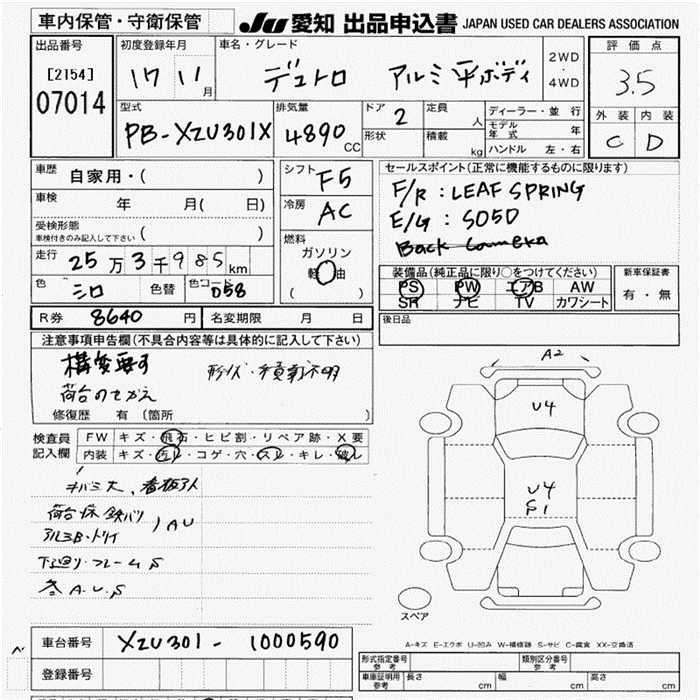 車内保管・守衛保管
JU 愛知 出品申込書 JAPAN USED CAR DEALERS ASSOCIATION
出品番号
[2154]
07014
初度登録年月
17 11月
車名・グレード
デュトロ アルミ平ボディ
2WD
・
4WD
評価点
3.5
外装 内装
C D
型式
PB-XZU301X
排気量
4890 CC
ドア 2
形状
定員 人
積載 kg
ディーラー・並行
モデル年式 年
ハンドル 左・右
車歴 自家用・( )
車検 年 月( 日)
受検形態
車検付きのみ記入して下さい ( )
走行 25万3千985km
色 シロ 色替 色コード 058
シフト F5
冷房 AC
燃料
ガソリン
軽油
( )
セールスポイント(正常に機能するものに限ります)
F/R : LEAF SPRING
E/G : S05D
Back Camera
装備品(純正品に限り○をつけてください)
PS PW エアB AW
SR ナビ TV カワシート
新車保証書
有・無
R券 8640 円 名変期限 月 日
後日品
注意事項申告欄(不具合内容等は具体的に記入して下さい)
構変要す 形状・積載不明
荷台のせかえ
修復歴 有 (箇所 )
検査員記入欄
FW キズ・飛石・ヒビ割・リペア跡・X要
内装 キズ・汚レ・コゲ・穴・スレ・キレ・破レ
キバミ大、看板アト
下廻り・フレームS
各A.U.S
A2
U4
U4
S1
スペア
A-キズ E-エクボ U-凹み W-補修跡 S-サビ C-腐食 XX-交換済
車台番号 XZU301-1000590
登録番号
形式指定番号 参考
類別区分番号 参考
車庫証明用 参考 長さ cm 幅 cm 高さ cm